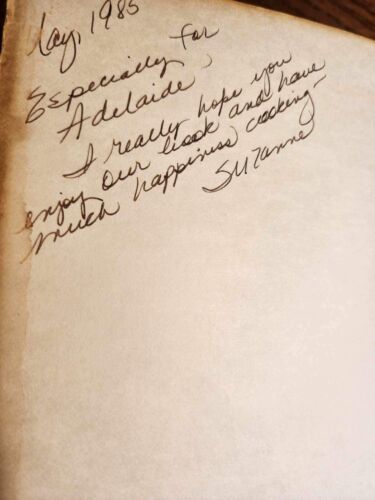 May, 1985
Especially for
Adelaide,
I really hope you
enjoy our book and have
much happiness cooking—
Suzanne